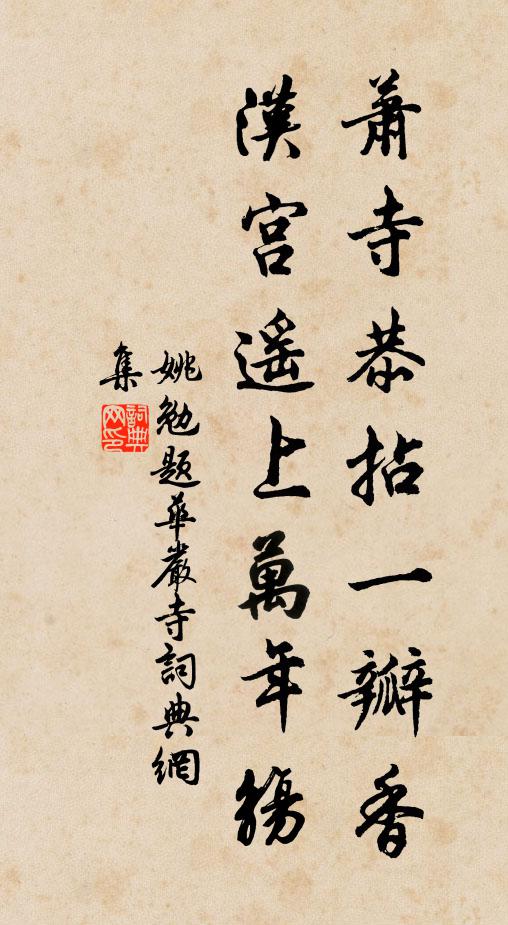 蕭寺恭拈一瓣香
漢宮遥上萬年觴
姚勉題華嚴寺詞典網
集
詞典網印